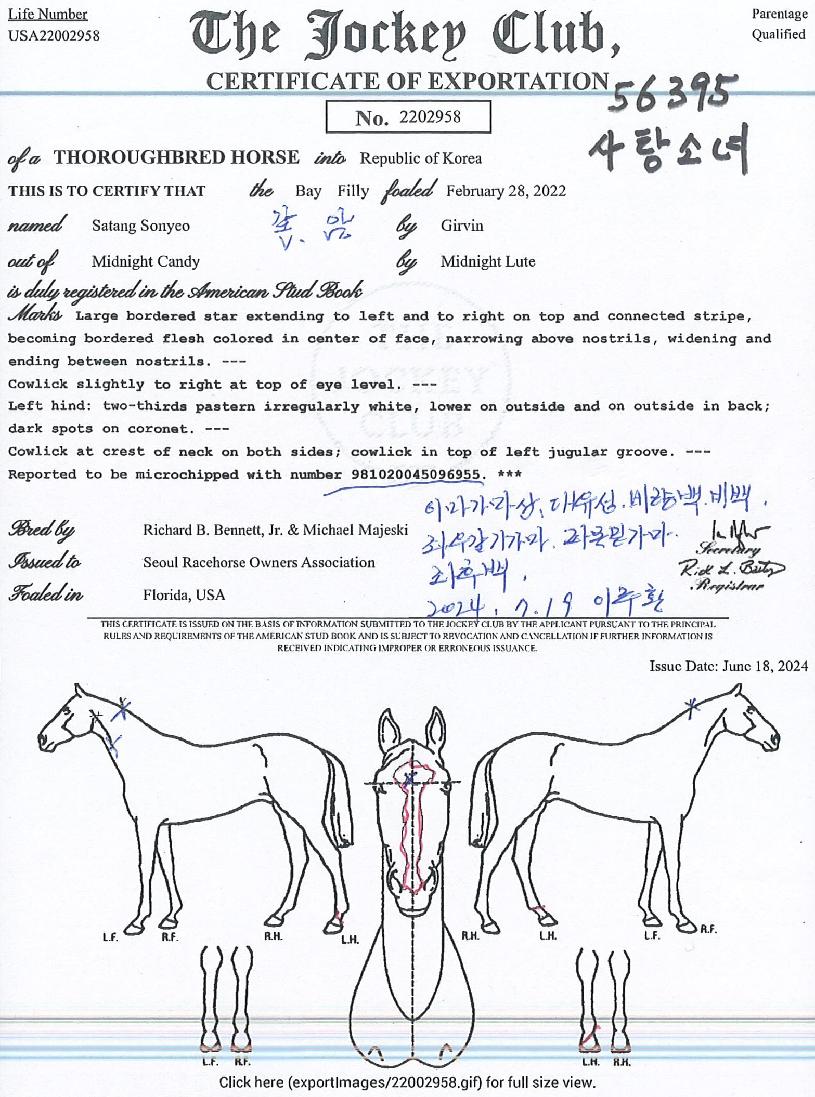 Life Number
USA22002958
The Jockey Club,
Parentage
Qualified
CERTIFICATE OF EXPORTATION
56395
No. 2202958
사탕소녀
of a THOROUGHBRED HORSE into Republic of Korea
THIS IS TO CERTIFY THAT the Bay Filly foaled February 28, 2022
named Satang Sonyeo 갈 암 by Girvin
out of Midnight Candy by Midnight Lute
is duly registered in the American Stud Book
Marks Large bordered star extending to left and to right on top and connected stripe,
becoming bordered flesh colored in center of face, narrowing above nostrils, widening and
ending between nostrils. ---
Cowlick slightly to right at top of eye level. ---
Left hind: two-thirds pastern irregularly white, lower on outside and on outside in back;
dark spots on coronet. ---
Cowlick at crest of neck on both sides; cowlick in top of left jugular groove. ---
Reported to be microchipped with number 981020045096955. ***
THE JOCKEY CLUB
이마가마상, 대유성, 비량백, 비백,
Bred by Richard B. Bennett, Jr. & Michael Majeski
좌우갈기가마.
Secretary
Issued to Seoul Racehorse Owners Association
좌후백,
Registrar
Foaled in Florida, USA
2024, 7.19 이주환
THIS CERTIFICATE IS ISSUED ON THE BASIS OF INFORMATION SUBMITTED TO THE JOCKEY CLUB BY THE APPLICANT PURSUANT TO THE PRINCIPAL
RULES AND REQUIREMENTS OF THE AMERICAN STUD BOOK AND IS SUBJECT TO REVOCATION AND CANCELLATION IF FURTHER INFORMATION IS
RECEIVED INDICATING IMPROPER OR ERRONEOUS ISSUANCE.
Issue Date: June 18, 2024
L.F. R.F. R.H. L.H. R.H. L.H. L.F. R.F.
L.F. R.F. L.H. R.H.
Click here (exportImages/22002958.gif) for full size view.